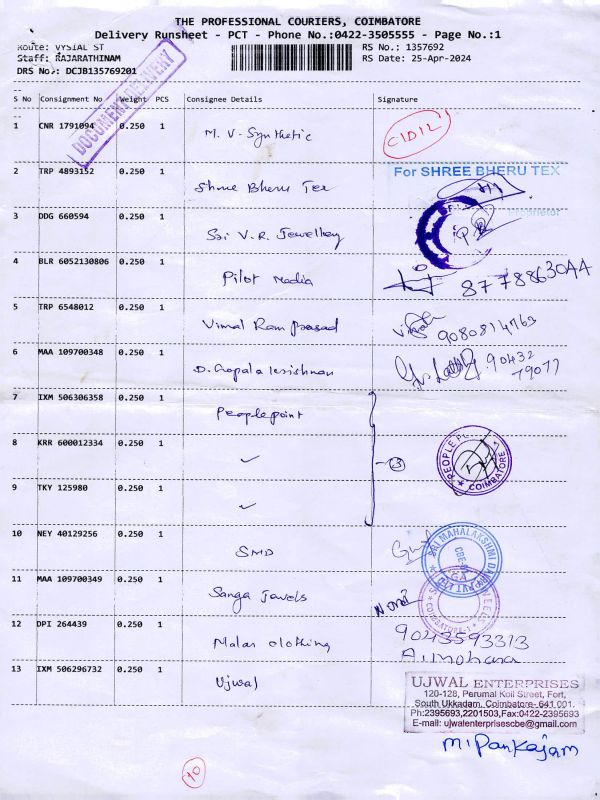 THE PROFESSIONAL COURIERS, COIMBATORE
Delivery Runsheet - PCT - Phone No.:0422-3505555 - Page No.:1
Route: VYSIAL ST
RS No.: 1357692
Staff: RAJARATHINAM
RS Date: 25-Apr-2024
DRS No.: DCJB135769201
DOCUMENT DELIVERY
S No Consignment No Weight PCS Consignee Details Signature
1 CNR 1791094 0.250 1 M. V. Synthetic
2 TRP 4893152 0.250 1 Shree Bheru Tex For SHREE BHERU TEX
Proprietor
3 DDG 660594 0.250 1 Sri V.R. Jewellery
4 BLR 6052130806 0.250 1 Pilot Media 8778863044
5 TRP 6548012 0.250 1 Vimal Ram prasad 9080814763
6 MAA 109700348 0.250 1 D. Gopala krishnan 90432
79077
7 IXM 506306358 0.250 1 Peoplepoint
8 KRR 600012334 0.250 1 ✓ 3
COIMBATORE
9 TKY 125980 0.250 1 ✓
10 NEY 40129256 0.250 1 SMD
SRI MAHALAKSHMI DAIRY
11 MAA 109700349 0.250 1 Sanga Jewels
COIMBATORE
12 DPI 264439 0.250 1 Malar clothing 9043593313
13 IXM 506296732 0.250 1 Ujwal
UJWAL ENTERPRISES
120-128, Perumal Koil Street, Fort,
South Ukkadam, Coimbatore-641 001.
Ph:2395693,2201503,Fax:0422-2395693
E-mail: ujwalenterprisescbe@gmail.com
M. Pankajam
10